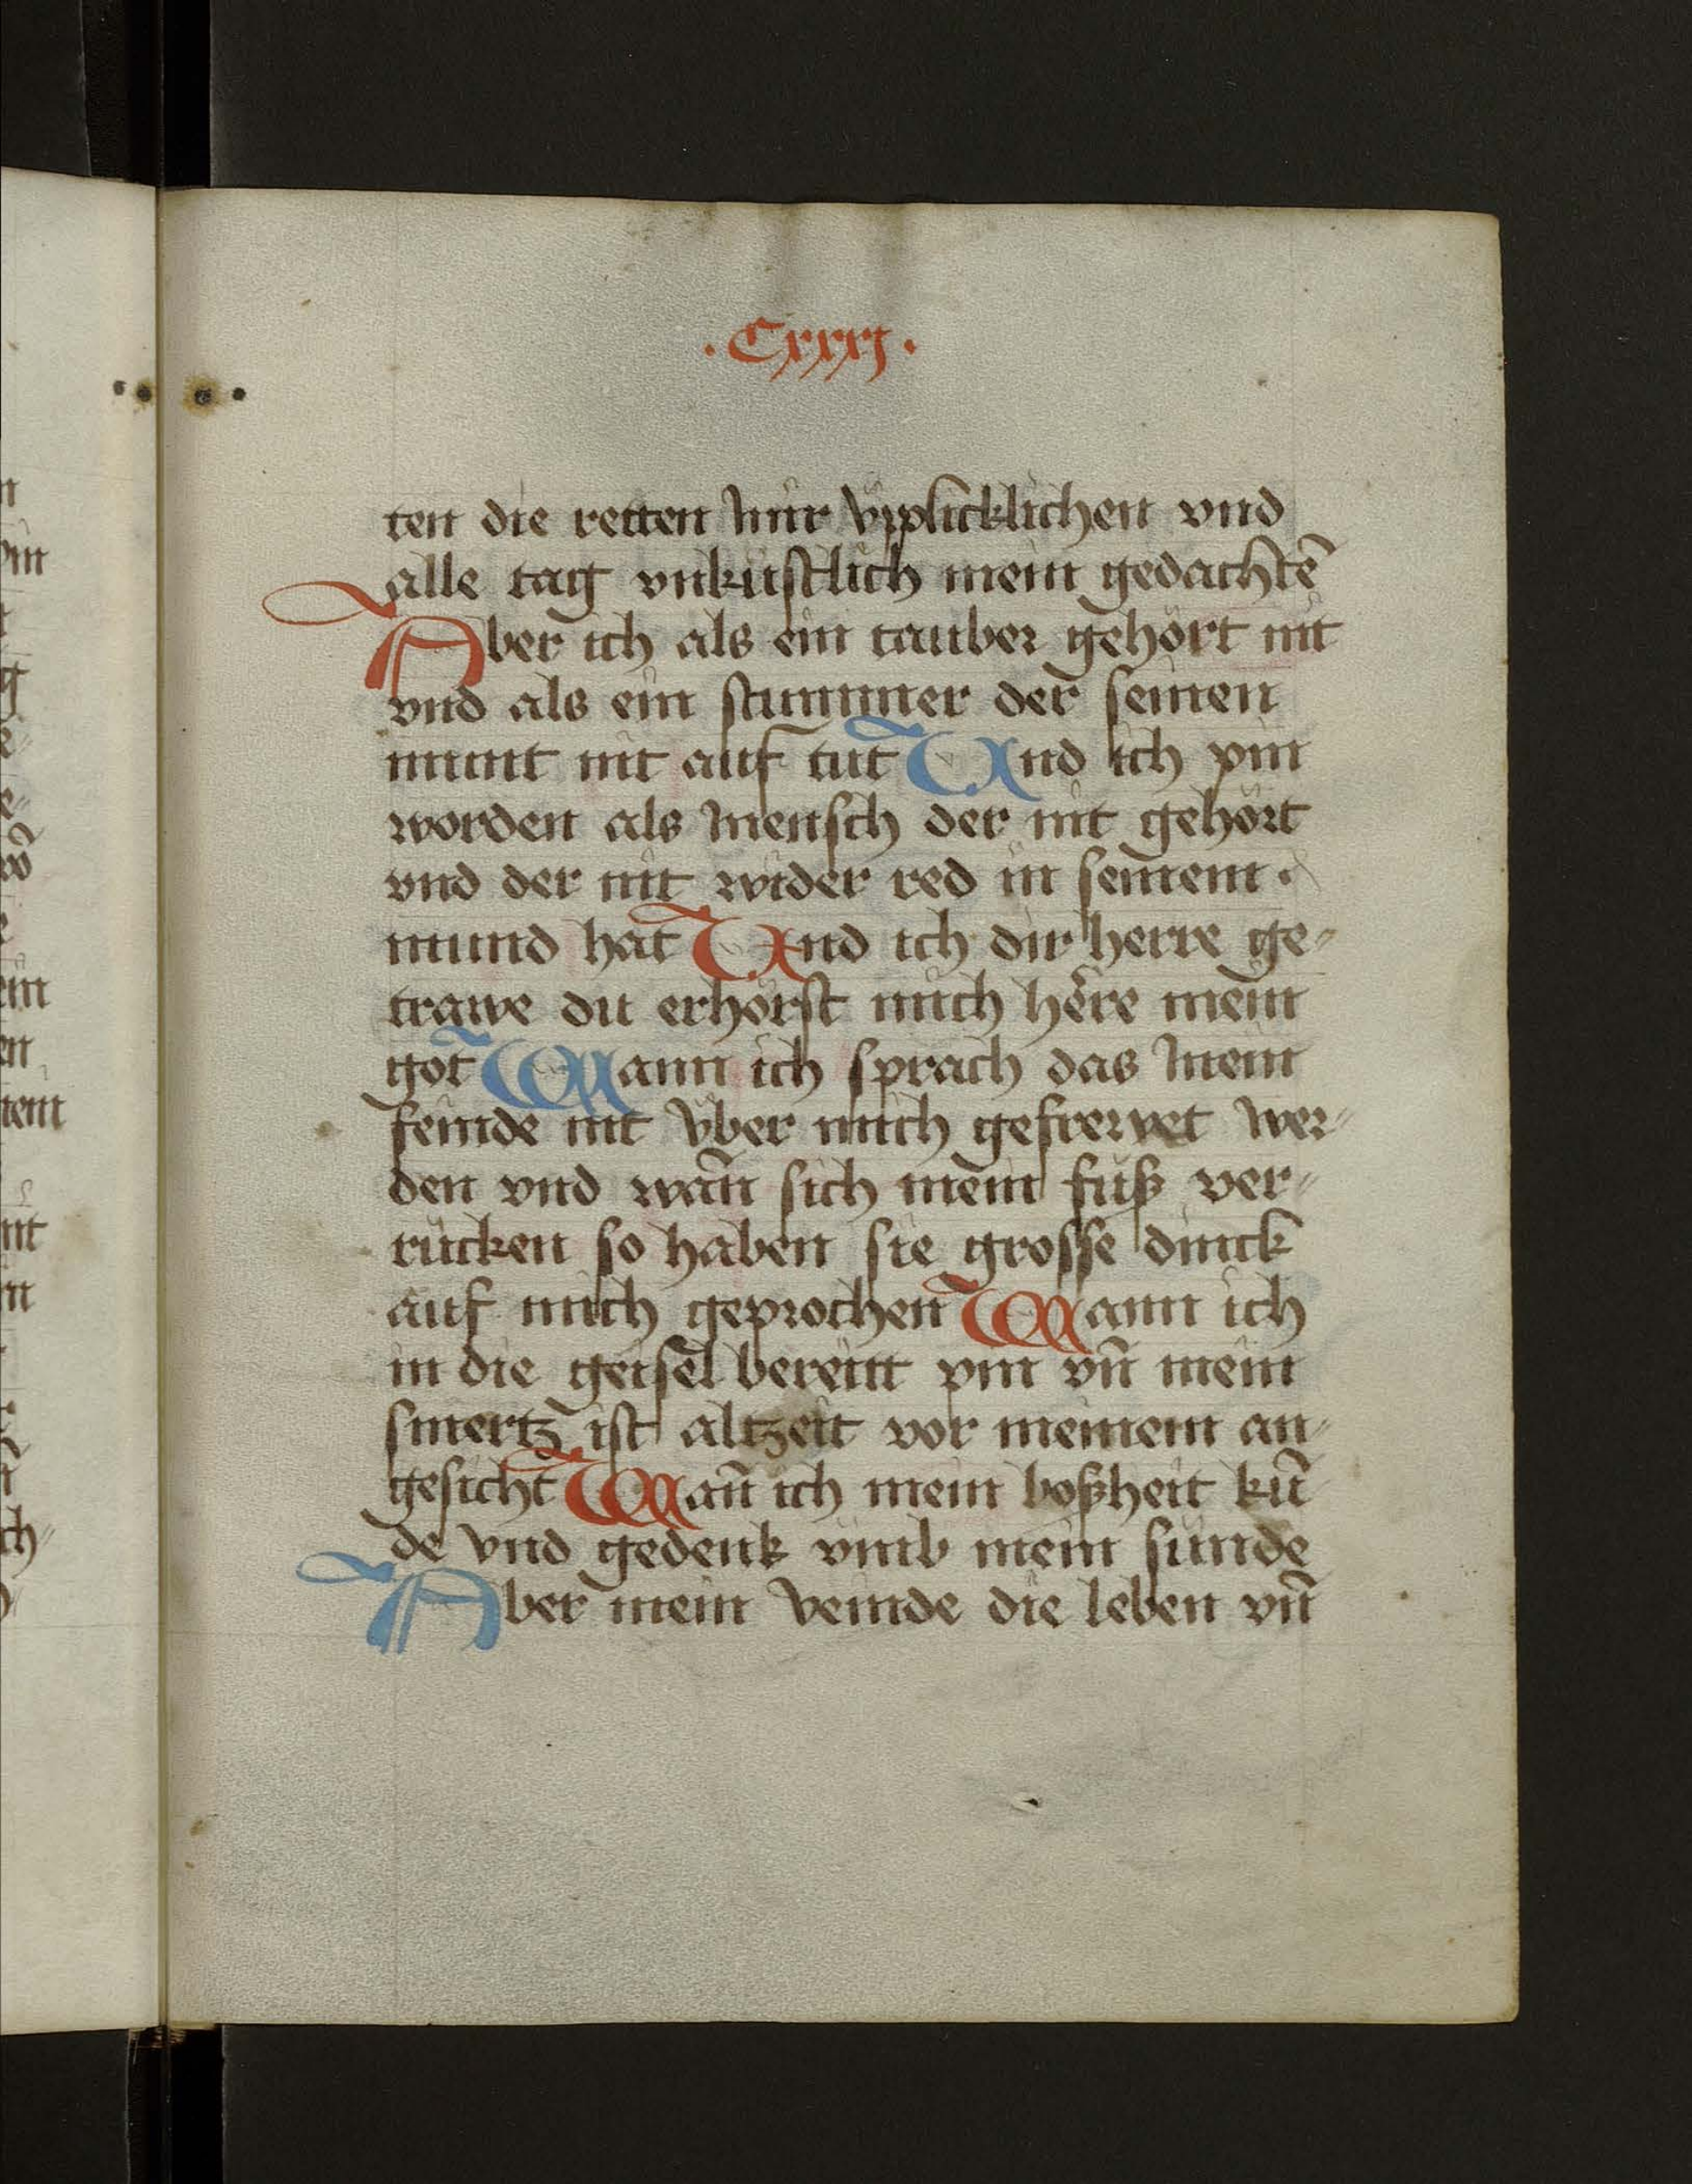 ·Cxxxj·
ten die retten mir vpplicklichen vnd
alle tag vnküstlich mein gedachtē
Aber ich als ein tauber gehört nit
vnd als ein stummer der seinen
munt nit auf tut Vnd ich pin
worden als mensch der nit gehört
vnd der nit wider red in seinem
mund hat Vnd ich dir herre ge⸗
trawe du erhörst mich here mein
got Wann ich sprach das mein
feinde nit vber mich gefrewet wer⸗
den vnd wañ sich mein fuß ver⸗
rucken so haben sie grosse dinck
auf mich geprochen Wann ich
in die geisel bereitt pin vñ mein
smertz ist altzeit vor meinem an⸗
gesicht Wañ ich mein boßheit kǖ
de vnd gedenk vmb mein sünde
Aber mein veinde die leben vñ